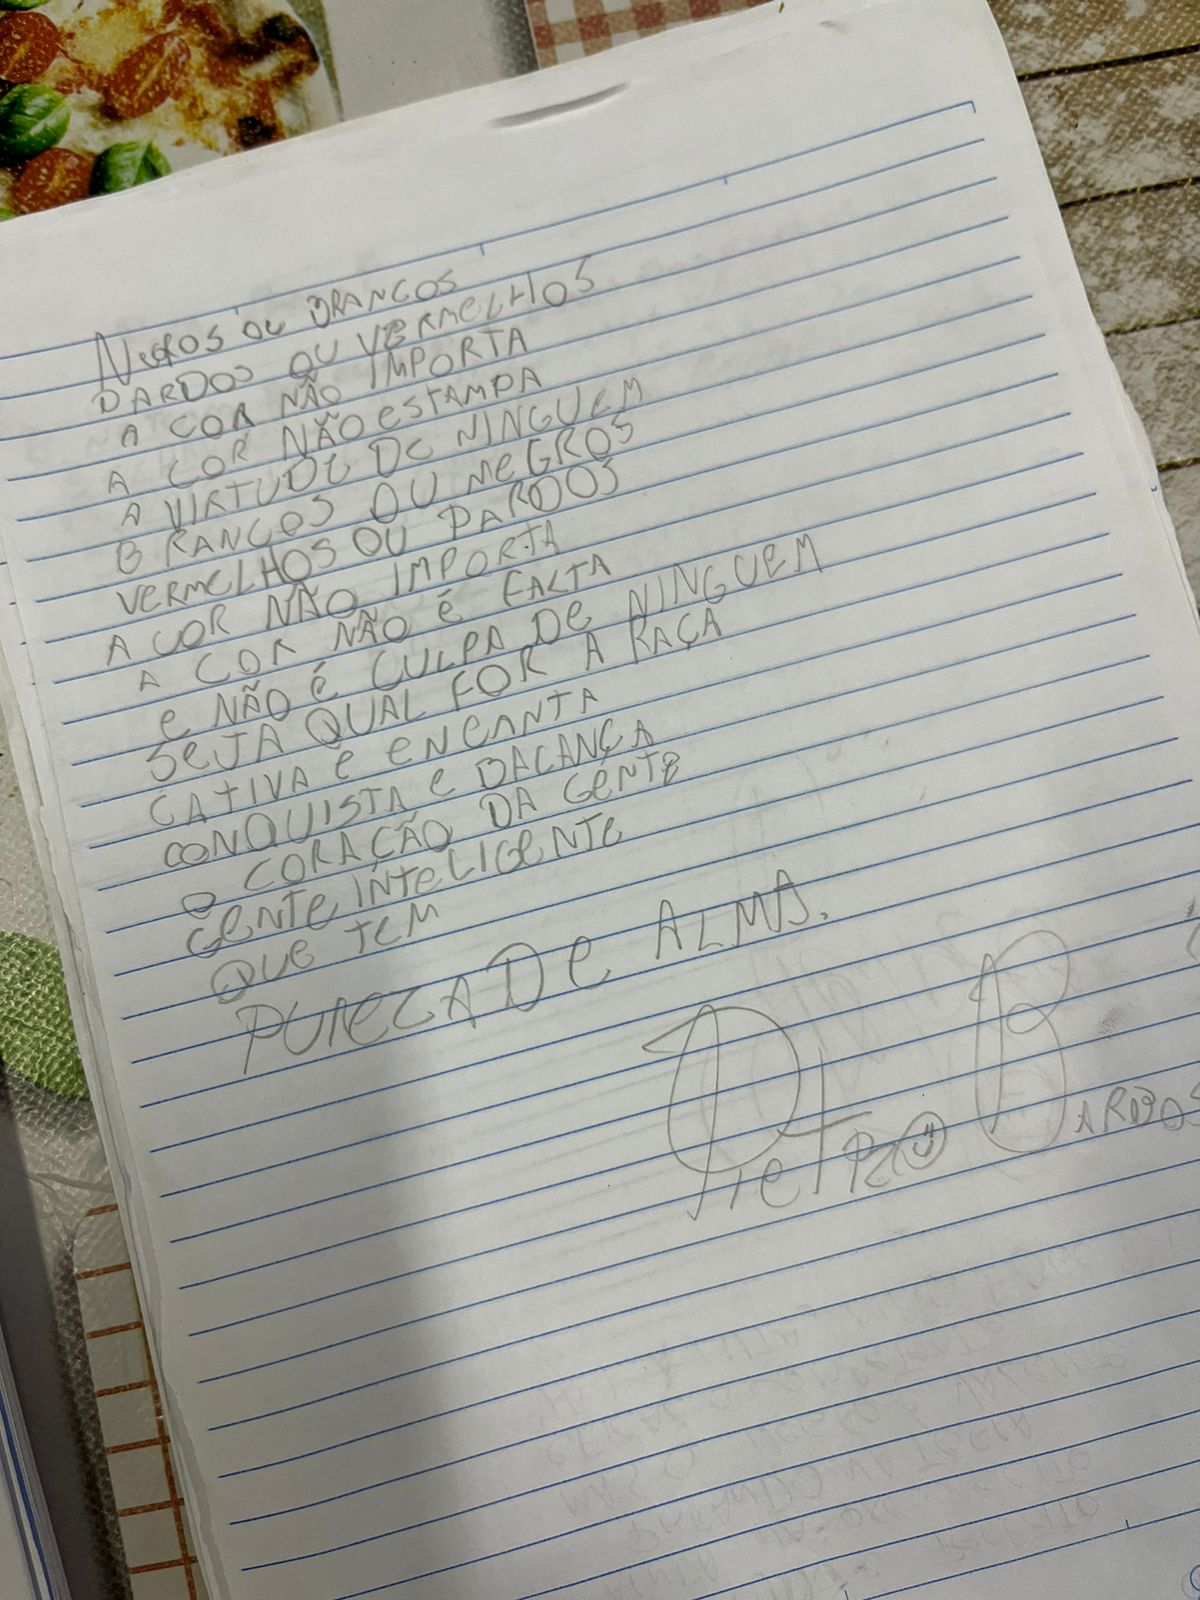 NegROS OU BRANCOS
PARDOS OU VERMELHOS
A COR NÃO IMPORTA
A COR NÃO ESTAMPA
A VIRTUDE DE NINGUEM
BRANCOS OU NEGROS
VERMELHOS OU PARDOS
A COR NÃO IMPORTA
A COR NÃO É FALTA
E NÃO É CULPA DE NINGUEM
SEJA QUAL FOR A RAÇA
CATIVA E ENCANTA
CONQUISTA E BALANÇA
O CORAÇÃO DA GENTE
GENTE INTELIGENTE
QUE TEM
PUREZA DE ALMA.
PIETRO BARROS